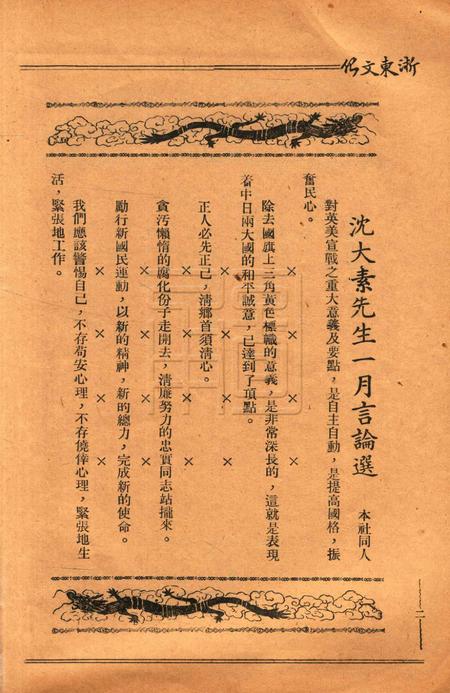 浙東文化
沈大素先生一月言論選
本社同人
對英美宣戰之重大意義及要點，是自主自動，是提高國格，振
奮民心。
× × × ×
除去國旗上三角黃色標幟的意義，是非常深長的，這就是表現
着中日兩大國的和平誠意，已達到了頂點。
× × × ×
正人必先正己，淸鄕首須淸心。
× × × ×
貪汚懶惰的腐化份子走開去，淸廉努力的忠實同志站攏來。
× × × ×
勵行新國民運動，以新的精神，新的總力，完成新的使命。
× × × ×
我們應該警惕自己，不存苟安心理，不存僥倖心理，緊張地生
活，緊張地工作。
二